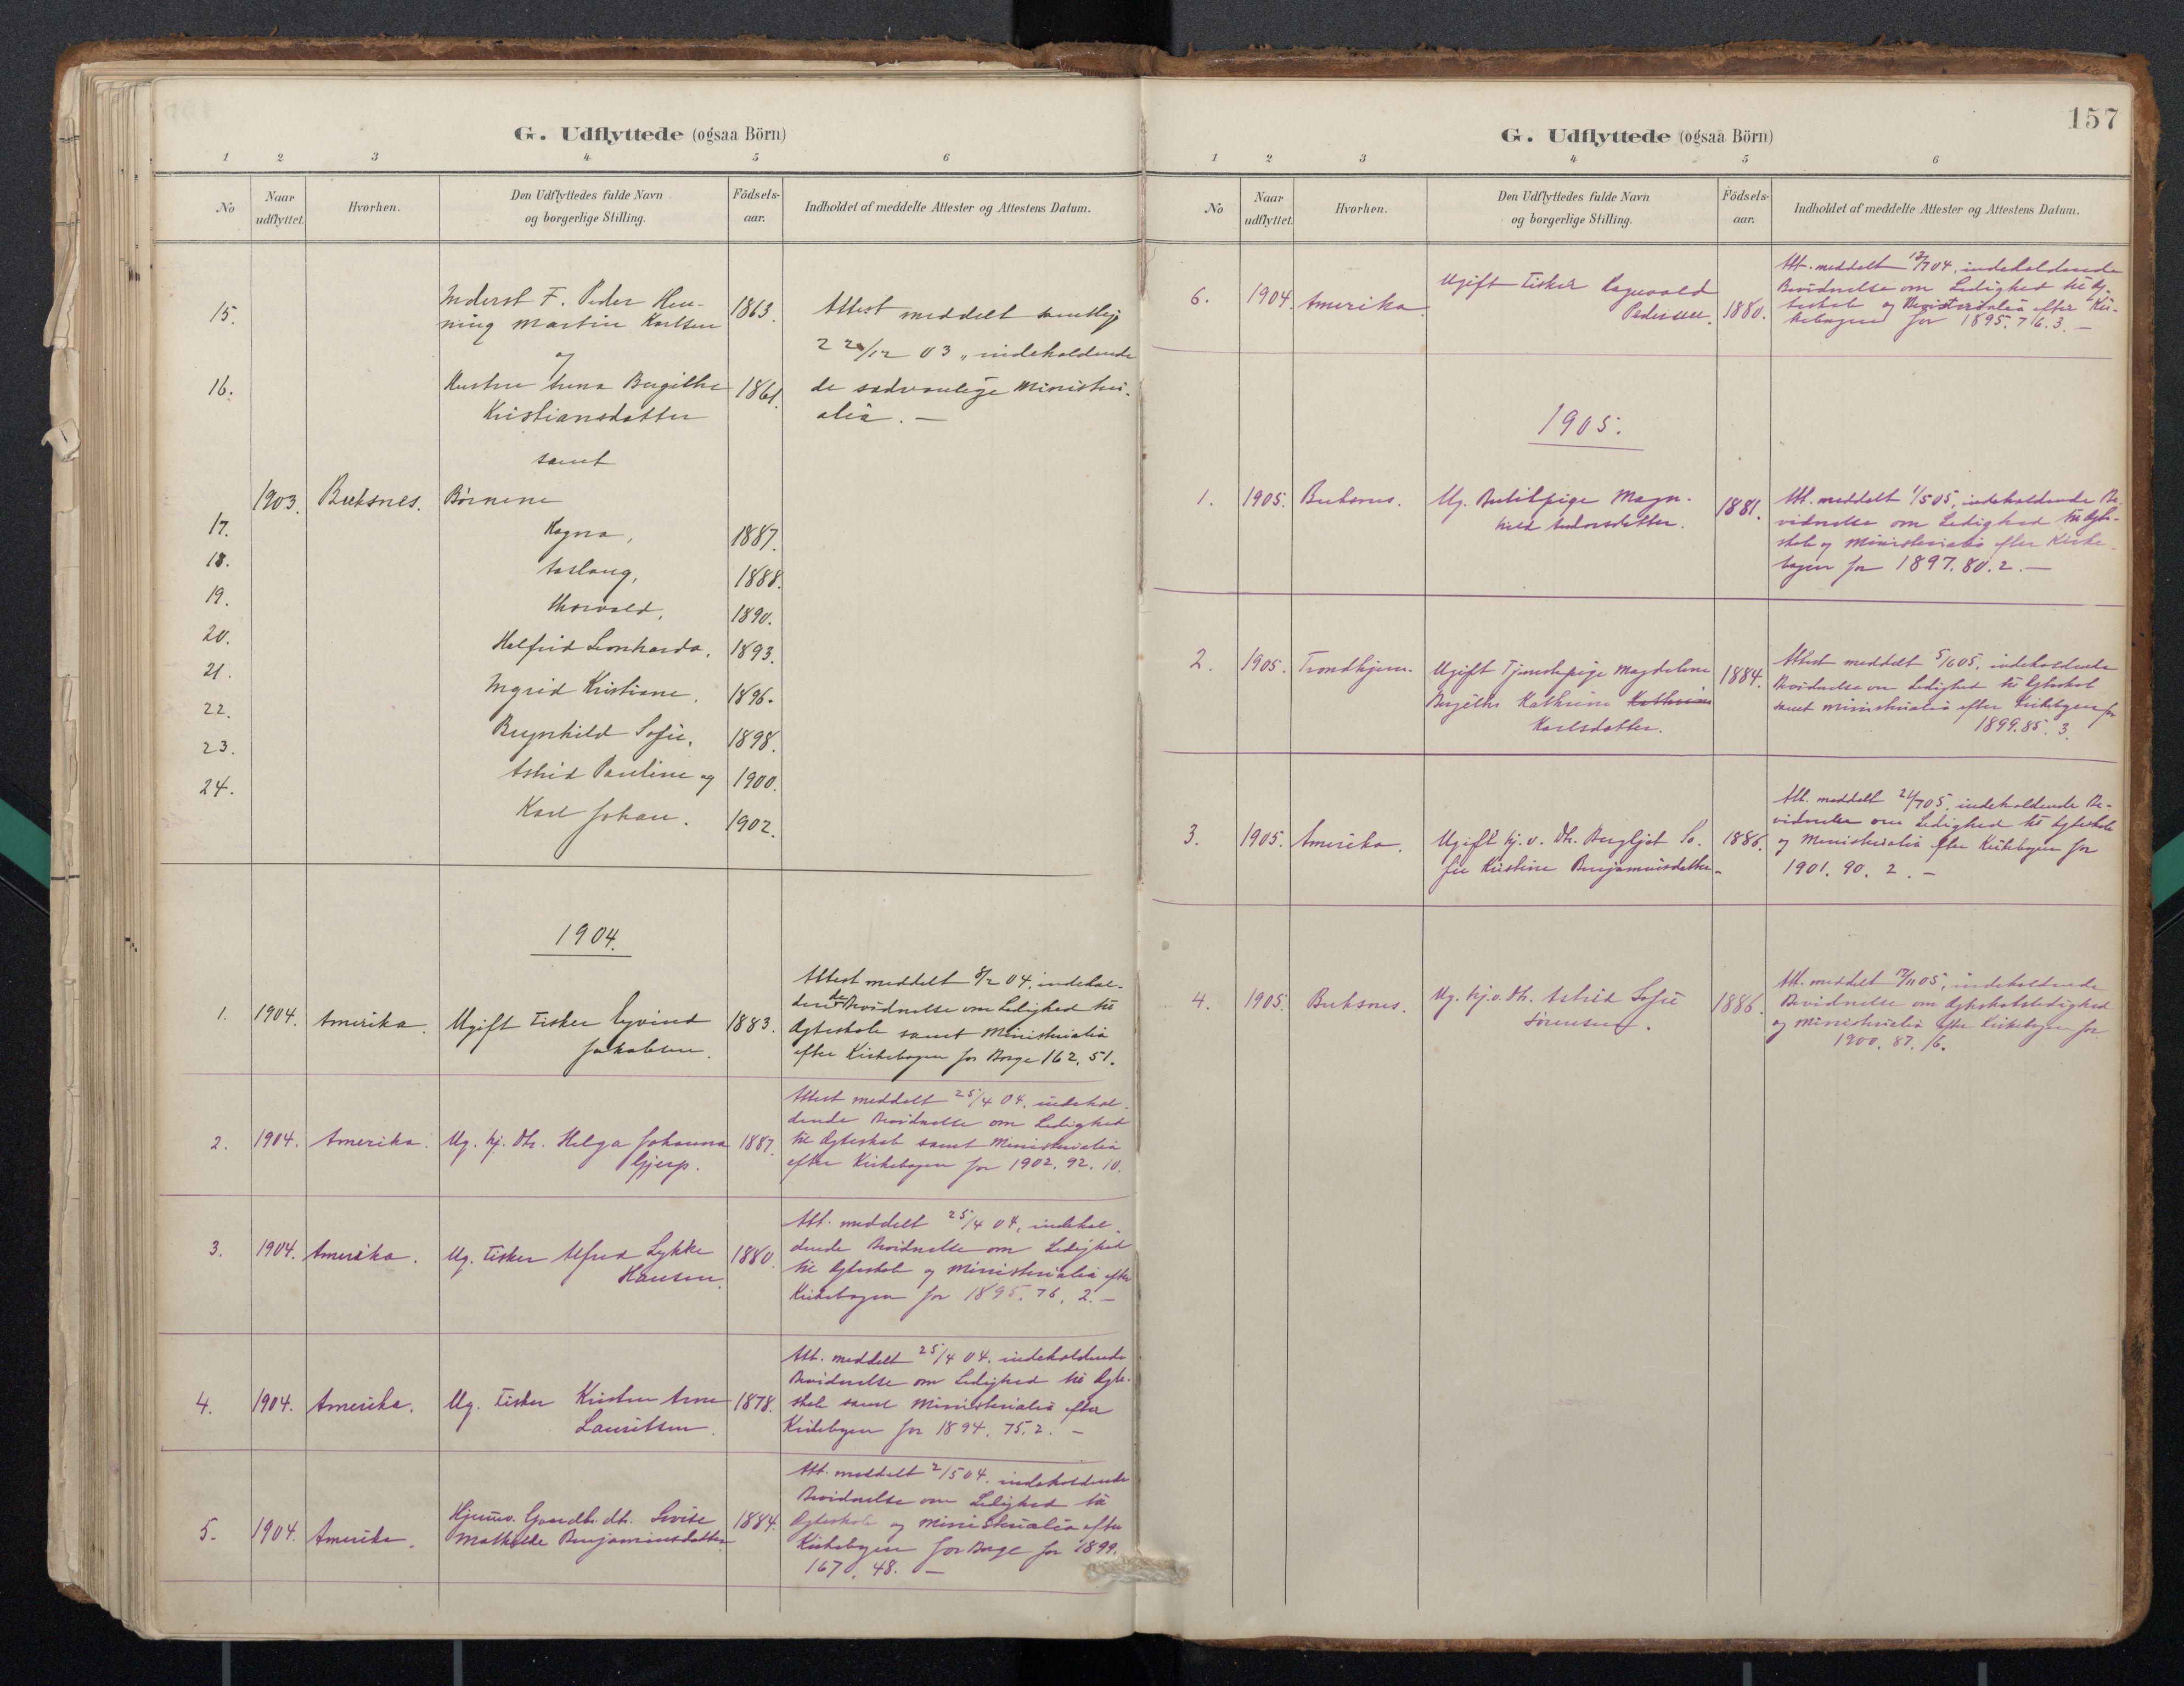 G. Udflyttede (ogsaa Börn)
1 2 3 4 5 6
No
Naar udflyttet.
Hvorhen.
Den Udflyttedes fulde Navn og borgerlige Stilling.
Födsels-aar.
Indholdet af meddelte Attester og Attestens Datum.
15. Inderst F. Peder Hen- 1863. Attest meddelt samtlige
ning Martin Karlsen
og 22/12 03, indeholdende
16. Hustru Anna Bergithe 1861. de sædvanlige Ministeri-
Kristiansdatter alia. —
samt
1903. Buksnes. Börnene
17. Magna, 1887.
18. Aslaug, 1888.
19. Thorvald, 1890.
20. Halfrid Leonharda, 1893.
21. Ingrid Kristiane, 1896.
22. Brynhild Sofie, 1898.
23. Astrid Pauline og 1900.
24. Karl Johan. 1902.
1904.
Attest meddelt 8/2 04, indehol-
dende Bevidnelse om Ledighed til
1. 1904. Amerika. Ugift Fisker Eyvind 1883. Ægteskab samt Ministerialia
Jakobsen. efter Kirkebogen for Borge 162, 51.
Attest meddelt 25/4 04, indehol-
dende Bevidnelse om Ledighed
2. 1904. Amerika. Ug. hj. Dtr. Helga Johanna 1887. til Ægteskab samt Ministerialia
Gjerp. efter Kirkebogen for 1902. 92. 10.
Att. meddelt 25/4 04, indehol-
3. 1904. Amerika. Ug. Fisker Alfred Lykke 1880. dende Bevidnelse om Ledighed
Hansen. til Ægteskab og Ministerialia efter
Kirkebogen for 1895. 76, 2. —
Att. meddelt 25/4 04, indeholdende
Bevidnelse om Ledighed til Ægte-
4. 1904. Amerika. Ug. Fisker Kristen Arne 1878. skab samt Ministerialia efter
Lauritsen. Kirkebogen for 1894. 75. 2. —
Att. meddelt 2/5 04, indeholdende
Bevidnelse om Ledighed til
5. 1904. Amerika. Hjemv. Gaardbr. dtr. Lovise 1884. Ægteskab og Ministerialia efter
Mathilde Benjaminsdatter. Kirkebogen for Borge for 1899.
167, 48. —
157
G. Udflyttede (ogsaa Börn)
1 2 3 4 5 6
No
Naar udflyttet.
Hvorhen.
Den Udflyttedes fulde Navn og borgerlige Stilling.
Födsels-aar.
Indholdet af meddelte Attester og Attestens Datum.
Att. meddelt 04, indeholdende
Bevidnelse om Ledighed til Æg-
6. 1904. Amerika. Ugift Fisker Ragnvald teskab og Ministerialia efter Kir-
Pedersen. 1880. kebogen for 1895. 76. 3. —
1905.
1. 1905. Buksnes. Ug. Butikpige Magn- 1881. Att. meddelt 1/5 05, indeholdende Be-
hild Andorsdatter. vidnelse om Ledighed til Ægte-
skab og Ministerialia efter Kirke-
bogen for 1897. 80. 2. —
2. 1905. Trondhjem. Ugift Tjenestepige Magdalene 1884. Attest meddelt 5/6 05, indeholdende
Bergithe Kathrine Kathrine Bevidnelse om Ledighed til Ægteskab
Karlsdatter. samt Ministerialia efter Kirkebogen for
1899. 85. 3.
Att. meddelt 21/7 05, indeholdende Be-
vidnelse om Ledighed til Ægteskab
3. 1905. Amerika. Ugift hj. v. Dtr. Bergljot So- 1886. og Ministerialia efter Kirkebogen for
fie Kristine Benjaminsdatter. 1901. 90. 2. —
Att. meddelt 05, indeholdende
4. 1905. Buksnes. Ug. hj. v. Dtr. Astrid Sofie 1886. Bevidnelse om Ægteskabsledighed
Sörensen. og Ministerialia efter Kirkebogen for
1900. 87. 16.